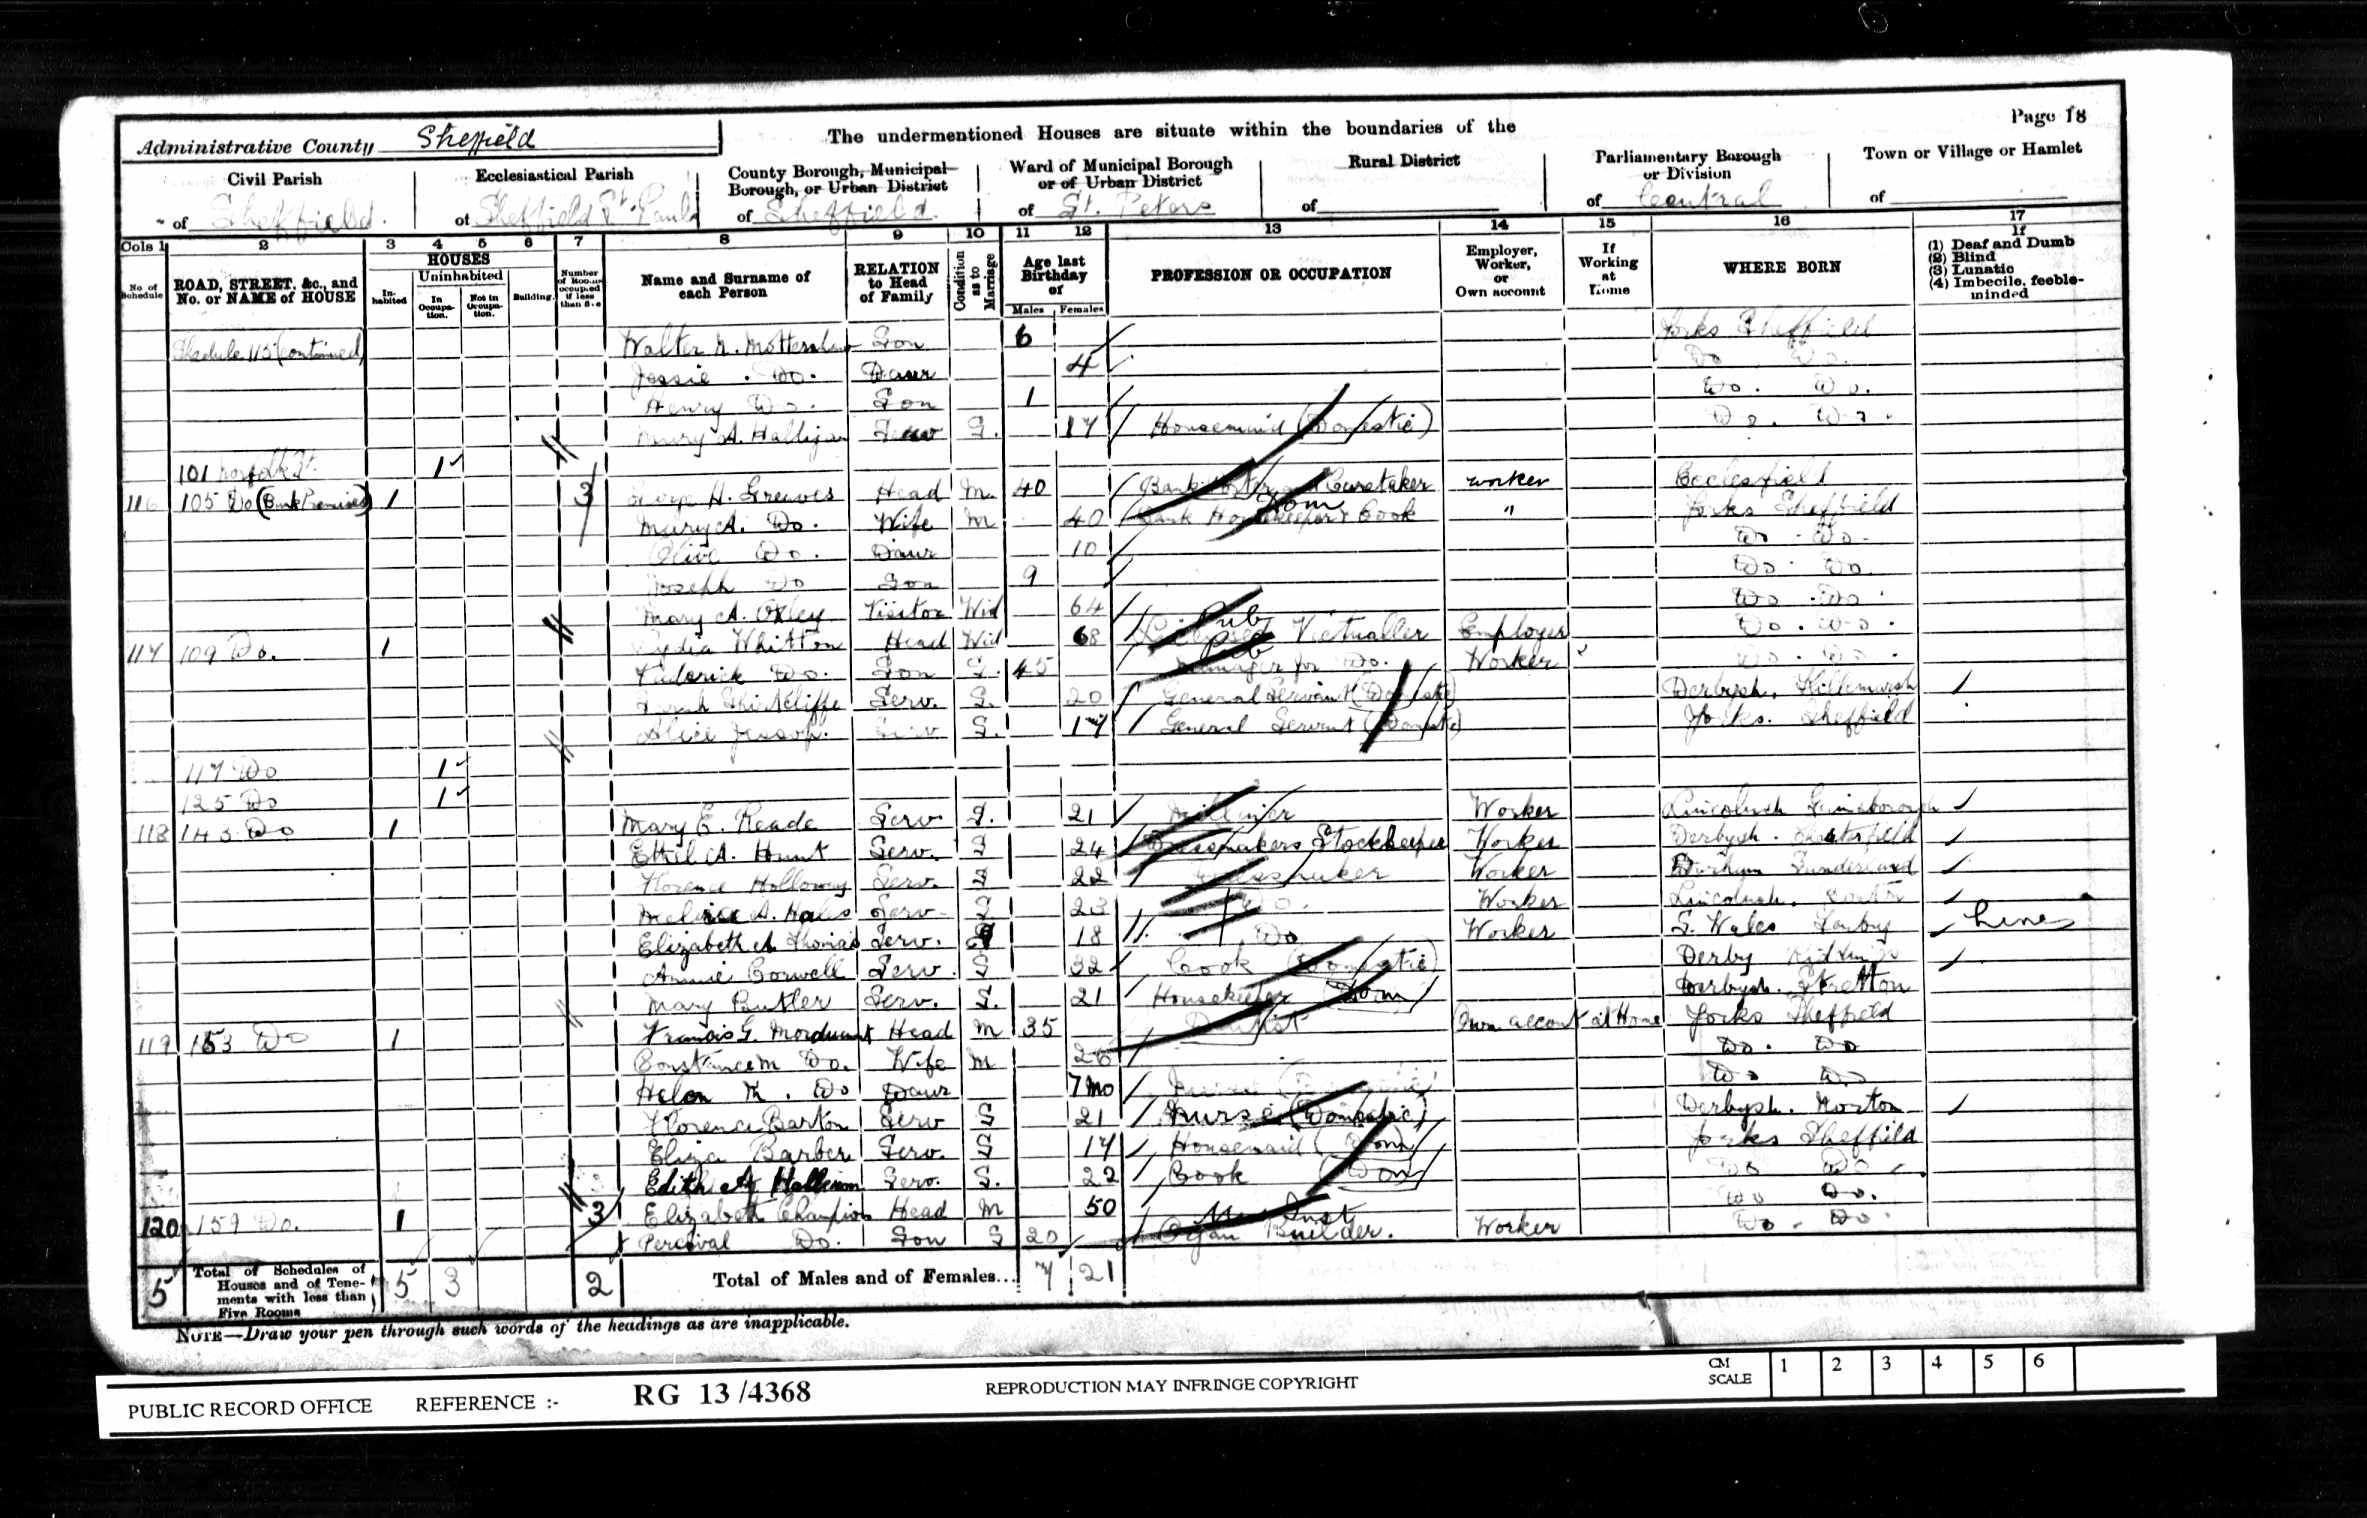 Page 18
Administrative County Sheffield
The undermentioned Houses are situate within the boundaries of the
Civil Parish of Sheffield
Ecclesiastical Parish of Sheffield St. Pauls
County Borough, Municipal Borough, or Urban District of Sheffield
Ward of Municipal Borough or of Urban District of St. Peters
Rural District of
Parliamentary Borough or Division of Central
Town or Village or Hamlet of
Cols 1 2 3 4 5 6 7 8 9 10 11 12 13 14 15 16 17
No. of Schedule
ROAD, STREET, &c., and No. or NAME of HOUSE
HOUSES
Inhabited
Uninhabited
In Occupation.
Not in Occupation.
Building.
Number of Rooms occupied if less than five
Name and Surname of each Person
RELATION to Head of Family
Condition as to Marriage
Age last Birthday of
Males Females
PROFESSION OR OCCUPATION
Employer, Worker, or Own account
If Working at Home
WHERE BORN
If
(1) Deaf and Dumb
(2) Blind
(3) Lunatic
(4) Imbecile, feeble-minded
Schedule 115 (continued) Walter Son 6 Yorks Sheffield
Jessie Do. Daur 4 Do Do.
Henry Do. Son 1 Do. Do.
Mary A. Serv S. 17 Housemaid (Domestic) Do. Do.
101 Norfolk St. 1
116 105 Do (Bank Premises) 1 3 George H. Greaves Head M. 40 Bank Porter and Caretaker worker Ecclesfield
Mary A. Do. Wife M 40 Bank Housekeeper & Cook Dom " Yorks Sheffield
Olive Do. Daur 10 Do. Do.
Joseph Do Son 9 Do. Do.
Mary A. Oxley Visitor Wid 64 Do. Do.
117 109 Do. 1 Lydia Whitton Head Wid 68 Licensed Victualler Pub Employer Do. Do.
Frederick Do. Son S. 45 Manager for Do. Pub Worker Do. Do.
Sarah Shirtcliffe Serv. S. 20 General Servant (Domestic) Derbysh.
Alice Jessop. Serv S. 17 General Servant (Domestic) Yorks. Sheffield
117 Do 1
125 Do 1
118 143 Do 1 Mary E. Reade Serv S. 21 Milliner Worker Lincolnsh Gainsborough
Ethel A. Hunt Serv. S 24 Dressmakers Stockkeeper Worker Derbysh. Chesterfield
Florence Holloway Serv. S 22 Dressmaker Worker Durham Sunderland
A. Hales Serv S 23 Do. Worker Lincolnsh.
Elizabeth A Thomas Serv. S 18 Do Worker S. Wales Lines
Annie Serv. S 32 Cook (Domestic) Derby
Mary Butler Serv. S. 21 Housekeeper Dom Derbysh. Stretton
119 153 Do 1 Francis G. Mordaunt Head M 35 Dentist Own account at Home Yorks Sheffield
Constance M Do. Wife M 26 Do. Do
Helen M. Do Daur 7 mo Do Do
Florence Barton Serv S 21 Nurse (Domestic) Derbysh. Norton
Eliza Barber Serv. S 17 Housemaid (Dom) Yorks Sheffield
Edith Serv. S. 22 Cook (Dom) Do Do
120 159 Do. 1 3 Elizabeth Champion Head M 50 Do Do.
Percival Do. Son S 20 Organ Builder. Mus Inst Worker Do. Do.
5 Total of Schedules of Houses and of Tenements with less than Five Rooms 5 3 2 Total of Males and of Females... 7 21
NOTE—Draw your pen through such words of the headings as are inapplicable.
PUBLIC RECORD OFFICE REFERENCE :- RG 13/4368 REPRODUCTION MAY INFRINGE COPYRIGHT CM SCALE 1 2 3 4 5 6